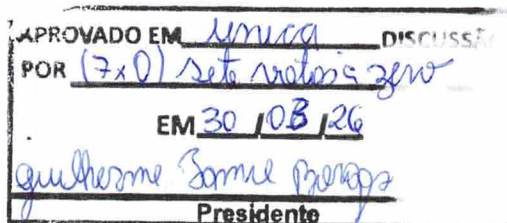 APROVADO EM unica DISCUSSÃ
POR (7x0) sete votos à zero
EM 30 / 03 / 26
guilherme
Presidente